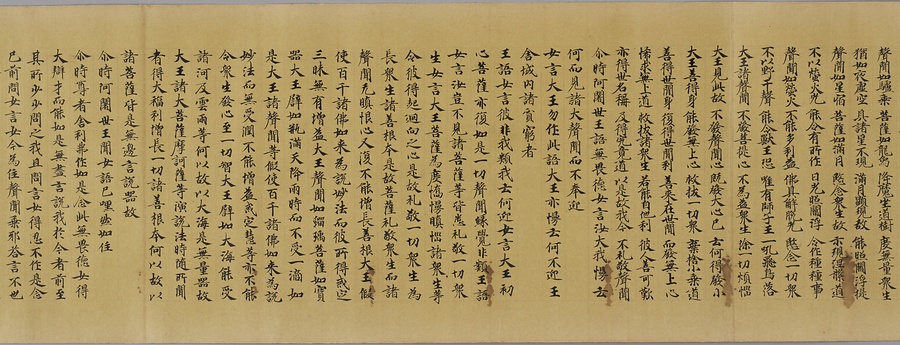 聲聞如驢乘 菩薩如龍馬 降魔坐道樹 度無量衆生
猶如夜虛空 具諸星不現 滿月顯現故 能照閻浮提
聲聞如星宿 菩薩如滿月 愍念衆生故 示現涅槃道
不以螢火光 能令有所作 日光照閻浮 令作種種事
聲聞如螢火 不能多利益 佛具解脫光 愍念一切衆
不以野干聲 能令獸王恐 唯有師子王 一吼飛鳥落
大王諸聲聞 不發菩提心 不爲益衆生 除一切煩惱
大王見此故 不發聲聞心 既發大心已 云何得發小
大王善得身 能發無上心 救拔一切衆 棄捨小乘道
善得世間身 復得世間利 善來在世間 而發無上心
悕求無上道 救拔諸衆生 若能自他利 彼人善可歎
亦得世名稱 及得究竟道 以是故我今 不禮敬聲聞
尒時阿闍世王語無畏德女言汝大我慢云
何而見諸大聲聞而不奉迎
女言大王勿作此語大王亦慢云何不迎王
舍城內諸貧窮者
王語女言彼非我類我云何迎女言大王初
心菩薩亦復如是一切聲聞緣覺非類王語
女言汝豈不見諸菩薩等皆悉礼敬一切衆
生女言大王菩薩爲度憍慢瞋惱諸衆生等
令彼得起迴向之心是故礼敬一切衆生爲
長衆生諸善根本是故菩薩礼敬衆生而諸
聲聞无瞋恨心又復不能增長善根大王假
使百千諸佛如来爲說妙法而彼所得戒定
三昧無有增益大王聲聞如瑠璃菩薩如寶
器大王譬如瓶滿天降雨時而不受一渧如
是大王諸聲聞等假使百千諸佛如来爲說
妙法而無受潤不能增益戒定慧等亦不能
令衆生發心至一切智大王譬如大海能受
諸河及雲雨等何以故以大海是無量器故
大王諸大菩薩摩訶薩等演說法時随所聞
者得大福利增長一切諸善根本何以故以
諸菩薩皆是無邊言說器故
尒時阿闍世王聞女語已嘿然如住
尒時尊者舍利弗作如是念此無畏德女得
大辯才而能如是無盡言說我於今者前至
其所少少問之我且問言女得忍不作是念
已前問女言女今爲住聲聞乘邪荅言不也